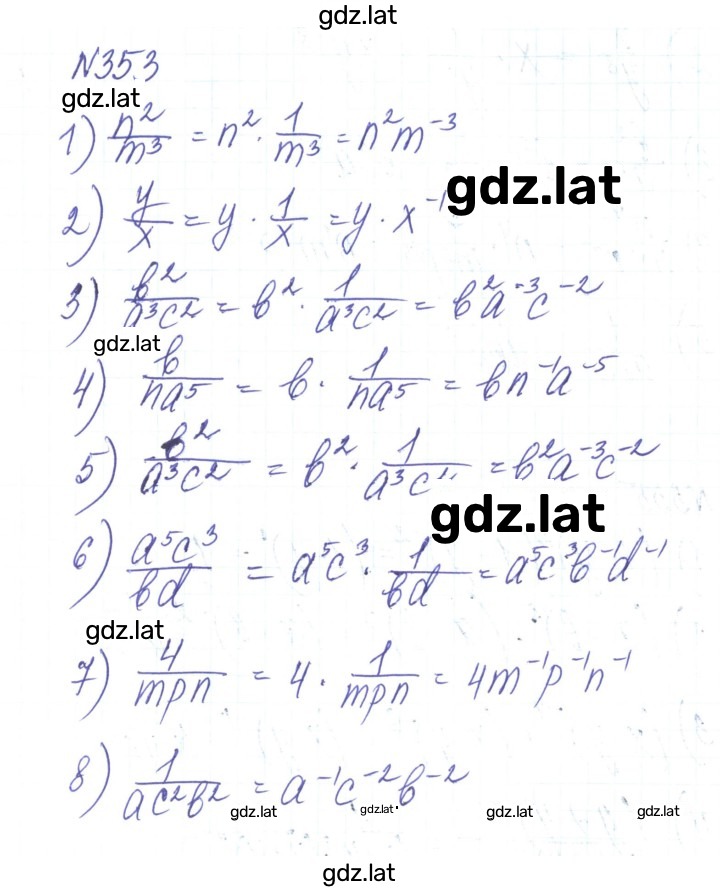 gdz.lat
N35.3
gdz.lat
1) n²/m³ = n² · 1/m³ = n²m⁻³
gdz.lat
2) y/x = y · 1/x = y · x⁻¹
3) b²/a³c² = b² · 1/a³c² = b²a⁻³c⁻²
gdz.lat
4) b/na⁵ = b · 1/na⁵ = bn⁻¹a⁻⁵
5) b²/a³c² = b² · 1/a³c² = b²a⁻³c⁻²
gdz.lat
6) a⁵c³/bd = a⁵c³ · 1/bd = a⁵c³b⁻¹d⁻¹
gdz.lat
7) 4/mpn = 4 · 1/mpn = 4m⁻¹p⁻¹n⁻¹
8) 1/ac²b² = a⁻¹c⁻²b⁻²
gdz.lat gdz.lat gdz.lat gdz.lat
gdz.lat